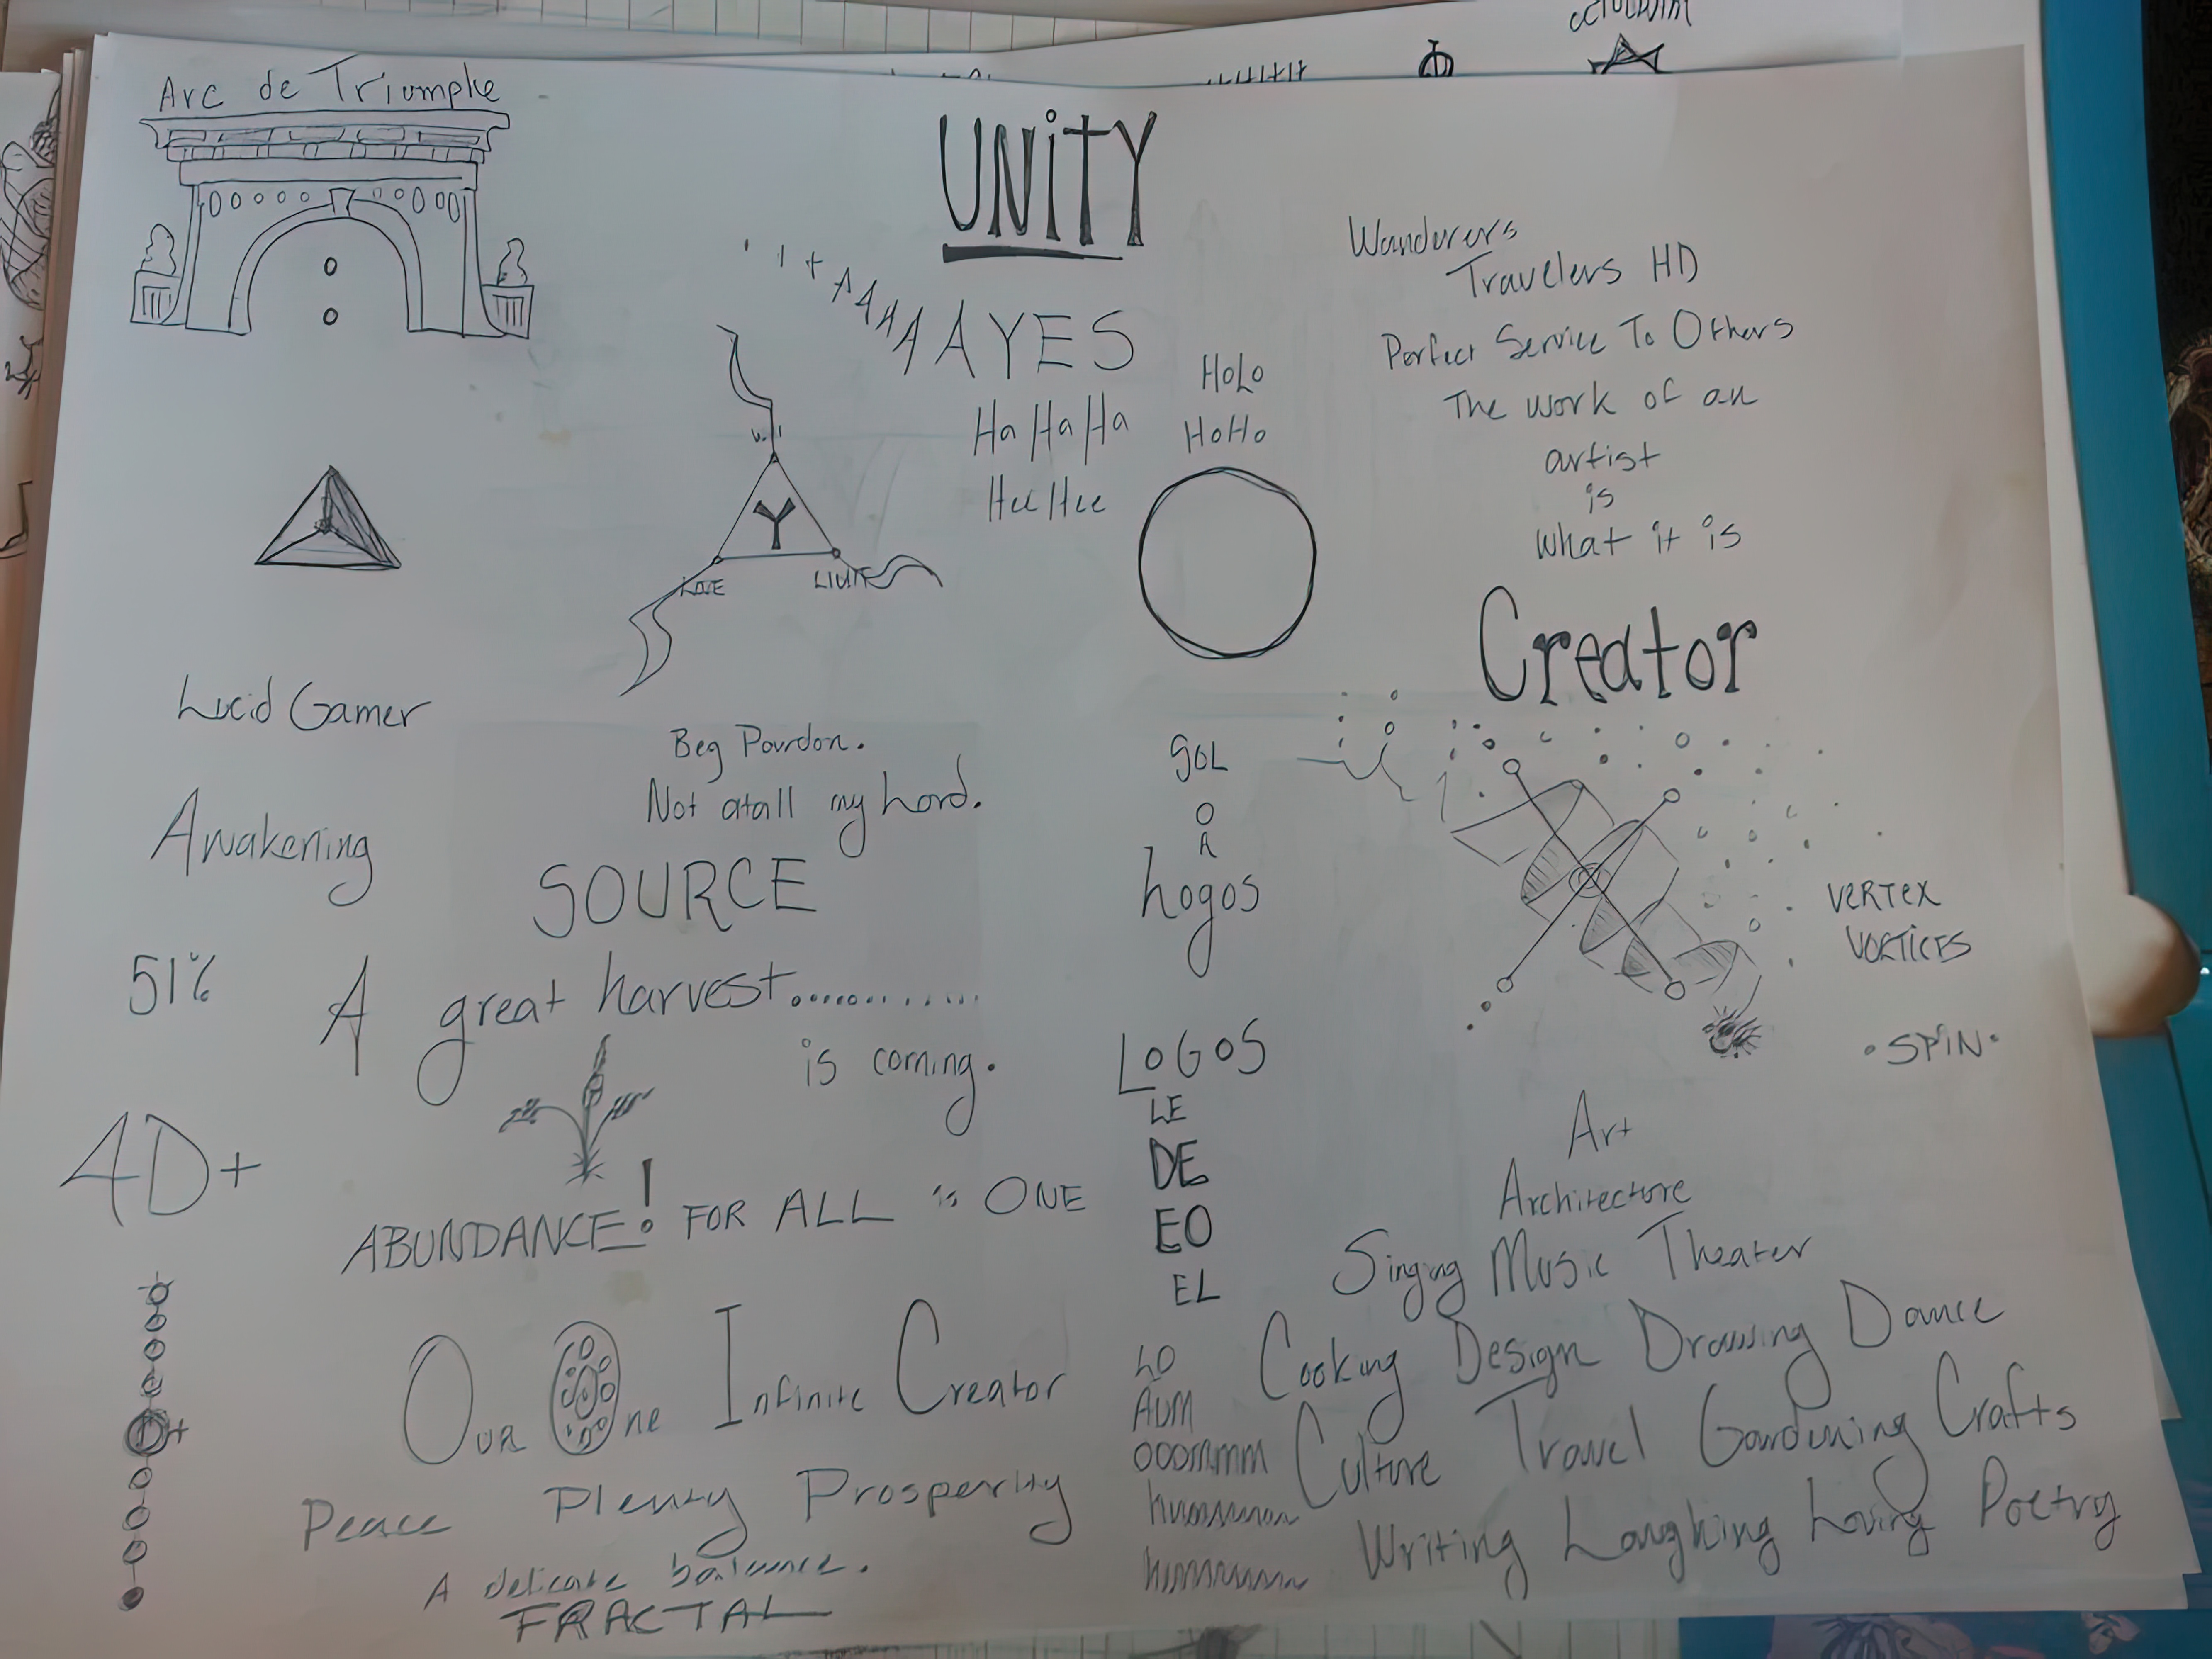 Arc de Triomphe
UNiTY
AYES
Ha Ha Ha
Hee Hee
HoLo
HoHo
Wanderers
Travelers HD
Perfect Service To Others
The work of an
artist
is
what it is
Will
Y
LOVE
Creator
Lucid Gamer
Beg Pardon.
Not atall my Lord.
SOL
O
A
Logos
Awakening
SOURCE
VERTEX
VORTICES
51%
A great harvest............
is coming.
• SPiN •
LOGOS
LE
DE
EO
EL
4D+
ABUNDANCE! FOR ALL is ONE
Art
Architecture
Singing Music Theater
Our One Infinite Creator
LO
AUM
OOOmmm
Cooking Design Drawing Dance
Culture Travel Gardening Crafts
Writing Laughing Loving Poetry
Peace Plenty Prosperity
A delicate balance.
FRACTAL